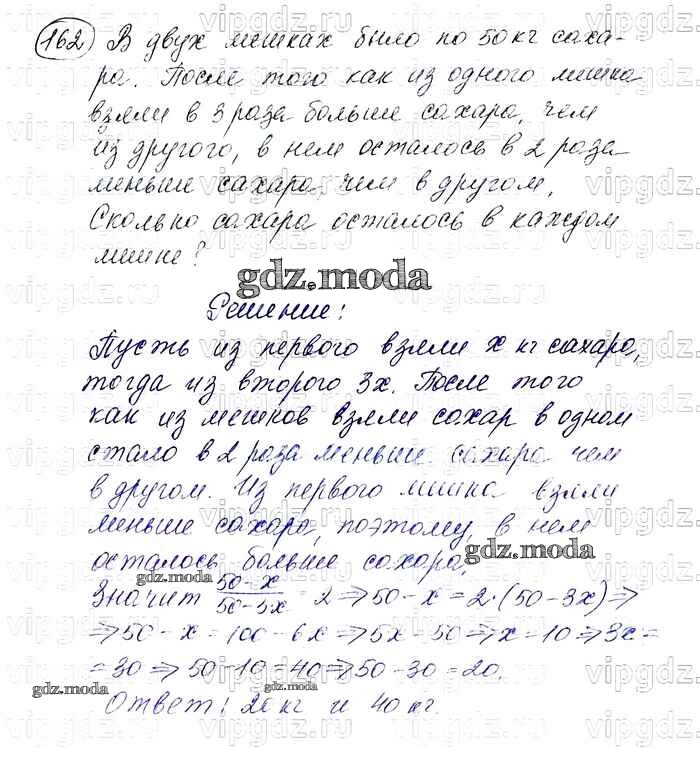 162 В двух мешках было по 50 кг саха-
ра. После того как из одного мешка
взяли в 3 раза больше сахара, чем
из другого, в нем осталось в 2 раза
меньше сахара, чем в другом.
Сколько сахара осталось в каждом
мешке?
gdz.moda
Решение:
Пусть из первого взяли x кг сахара,
тогда из второго 3x. После того
как из мешков взяли сахар в одном
стало в 2 раза меньше сахара чем
в другом. Из первого мешка взяли
меньше сахара, поэтому, в нем
gdz.moda
осталось больше сахара.
gdz.moda
Значит (50-x)/(50-3x) = 2 ⇒ 50-x = 2·(50-3x) ⇒
⇒ 50-x = 100-6x ⇒ 5x=50 ⇒ x=10 ⇒ 3x=
=30 ⇒ 50-10=40 ⇒ 50-30=20.
gdz.moda
gdz.moda
Ответ: 20 кг и 40 кг.